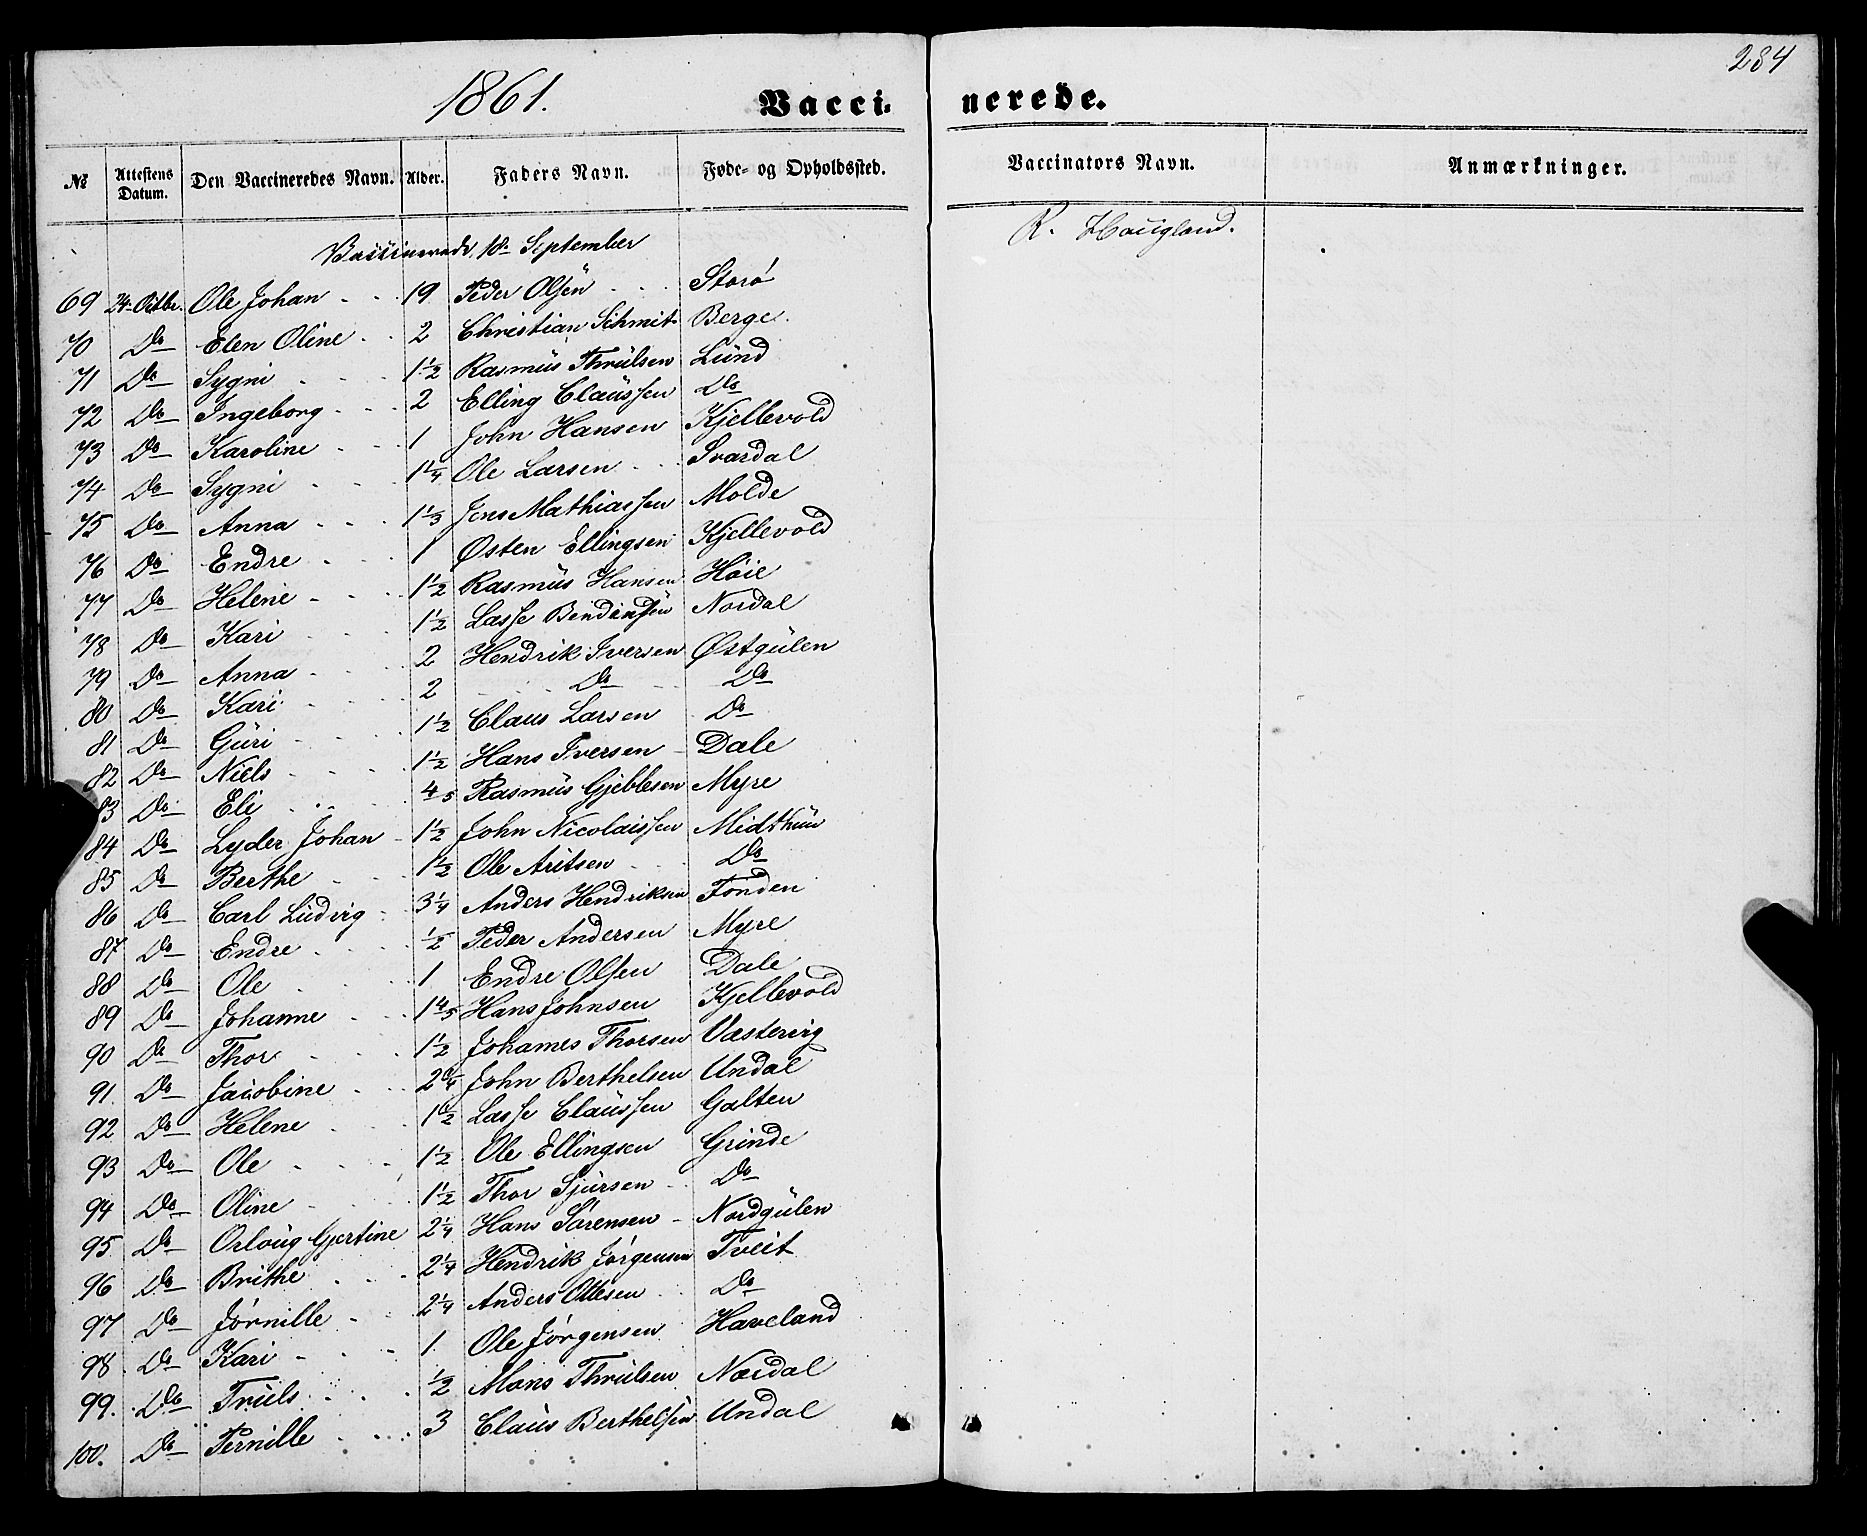 284
1861.
Vacci- nerede.
№ Attestens Datum. Den Vaccineredes Navn. Alder. Faders Navn. Føde- og Opholdssted. Vaccinators Navn. Anmærkninger.
Vaccinerede 18. September R. Haugland.
69 24. Octbr. Ole Johan 19 Peder Olsen Storø
70 Do Elen Oline 2 Christian Schmit Berge
71 Do Sygni 1 1/2 Rasmus Thrulsen Lund
72 Do Ingeborg 2 Elling Claussen Do
73 Do Karoline 1 John Hansen Kjellevold
74 Do Sygni 1 1/4 Ole Larsen Svardal
75 Do Anna 1 1/3 Jens Mathiassen Molde
76 Do Endre 1 Østen Ellingsen Kjellevold
77 Do Helene 1 1/2 Rasmus Hansen Høie
78 Do Kari 1 1/2 Lasse Bendixsen Nordal
79 Do Anna 2 Hendrik Iversen Østgulen
80 Do Kari 2 Do Do
81 Do Guri 1 1/2 Claus Larsen Do
82 Do Niels 1 1/2 Hans Iversen Dale
83 Do Eli 4/5 Rasmus Gjeblesen Myre
84 Do Lyder Johan 1 1/2 John Nicolaissen Midthun
85 Do Berthe 1 1/2 Ole Aritsen Do
86 Do Carl Ludvig 3 1/4 Anders Hendriksen Fonden
87 Do Endre 1/2 Peder Andersen Myre
88 Do Ole 1 Endre Olsen Dale
89 Do Johanne 1 4/5 Hans Johnsen Kjellevold
90 Do Thor 1 1/2 Johannes Thorsen Vastervig
91. Do Jacobine 2 John Berthelsen Undal
92 Do Helene 1 1/2 Lasse Claussen Galten
93 Do Ole 1 1/2 Ole Ellingsen Grinde
94 Do Oline 1 1/2 Thor Sjursen Do
95 Do Orloug Gjertine 2 1/4 Hans Sørensen Nordgulen
96 Do Brithe 2 1/4 Hendrik Jørgensen Tveit
97 Do Jørnille 2 1/4 Anders Ottesen Do
98 Do Kari 1 Ole Jørgensen Haveland
99. Do Truels 1/2 Mons Thrulsen Nordal
100. Do Pernille 3 Claus Berthelsen Undal